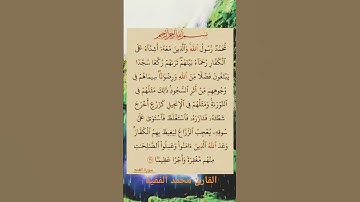 بسم الله الرحمن الرحيم
مُّحَمَّدٌ رَّسُولُ ٱللَّهِ وَٱلَّذِينَ مَعَهُۥٓ أَشِدَّآءُ عَلَى
ٱلْكُفَّارِ رُحَمَآءُ بَيْنَهُمْ تَرَىٰهُمْ رُكَّعًا سُجَّدًا
يَبْتَغُونَ فَضْلًا مِّنَ ٱللَّهِ وَرِضْوَٰنًا سِيمَاهُمْ فِى
وُجُوهِهِم مِّنْ أَثَرِ ٱلسُّجُودِ ذَٰلِكَ مَثَلُهُمْ فِى
ٱلتَّوْرَىٰةِ وَمَثَلُهُمْ فِى ٱلْإِنجِيلِ كَزَرْعٍ أَخْرَجَ
شَطْـَٔهُۥ فَـَٔازَرَهُۥ فَٱسْتَغْلَظَ فَٱسْتَوَىٰ عَلَىٰ
سُوقِهِۦ يُعْجِبُ ٱلزُّرَّاعَ لِيَغِيظَ بِهِمُ ٱلْكُفَّارَ
وَعَدَ ٱللَّهُ ٱلَّذِينَ ءَامَنُوا۟ وَعَمِلُوا۟ ٱلصَّٰلِحَٰتِ
مِنْهُم مَّغْفِرَةً وَأَجْرًا عَظِيمًۢا
سورة الفتح
القارئ محمد الفقيه